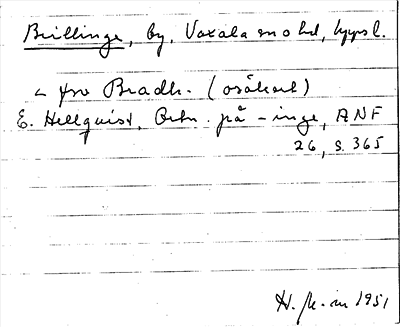 Brillinge, by, Vaxala sn o hd, Uppsl.
< fro Bradh- (osäkert)
E. Hellquist, Ortn. på -inge, ANF
26, s. 365
H. 1951